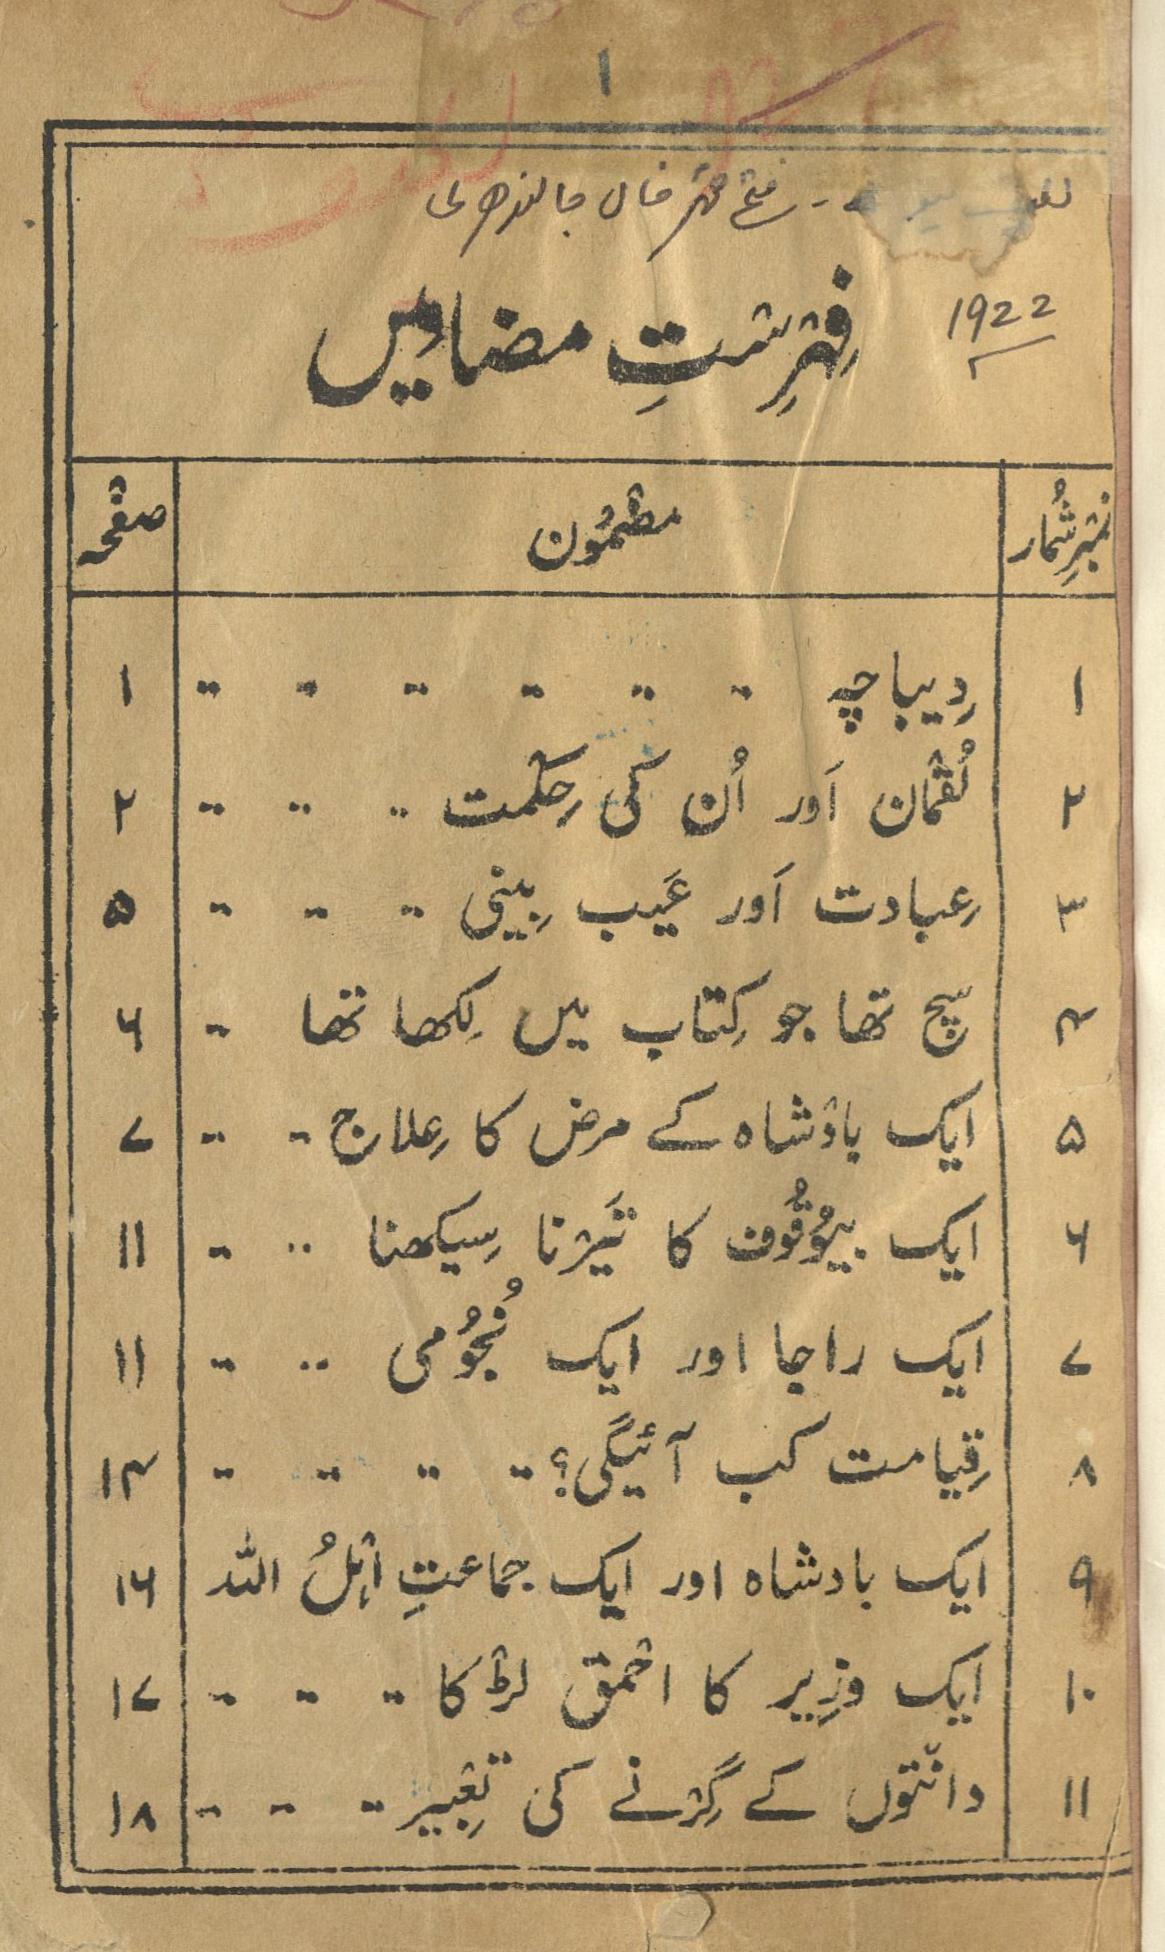 ۱
فتح محمد خاں جالندھری
1922
فِہْرِسْتِ مضامیں
نمْبرِ شُمار مضْمُون صفْحہ
۱ دِیباچہ ۱
۲ لُقْمان اَور اُن کی حِکْمت ۲
۳ عِبادت اَور عَیب بِینی ۵
۴ سچ تھا جو کِتاب میں لِکھا تھا ۶
۵ ایک بادْشاہ کے مرض کا عِلاج ۷
۶ ایک بیوُقُوف کا تَیرْنا سِیکھنا ۱۱
۷ ایک راجا اور ایک نُجُومی ۱۱
۸ قِیامت کب آئیگی؟ ۱۴
۹ ایک بادشاہ اور ایک جماعتِ اہْلُ اللہ ۱۶
۱۰ ایک وزِیر کا احْمق لڑکا ۱۷
۱۱ دانْتوں کے گِرْنے کی تعْبِیر ۱۸